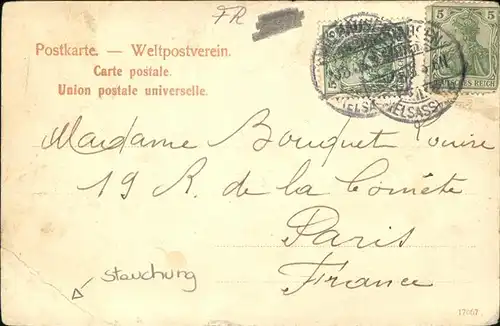 FR
Postkarte. — Weltpostverein.
Carte postale.
Union postale universelle.
5 5
DEUTSCHES REICH
(ELSASS)
Madame Bouquet Louise
19 R. de la Comète
Paris
France
Stauchung
17667